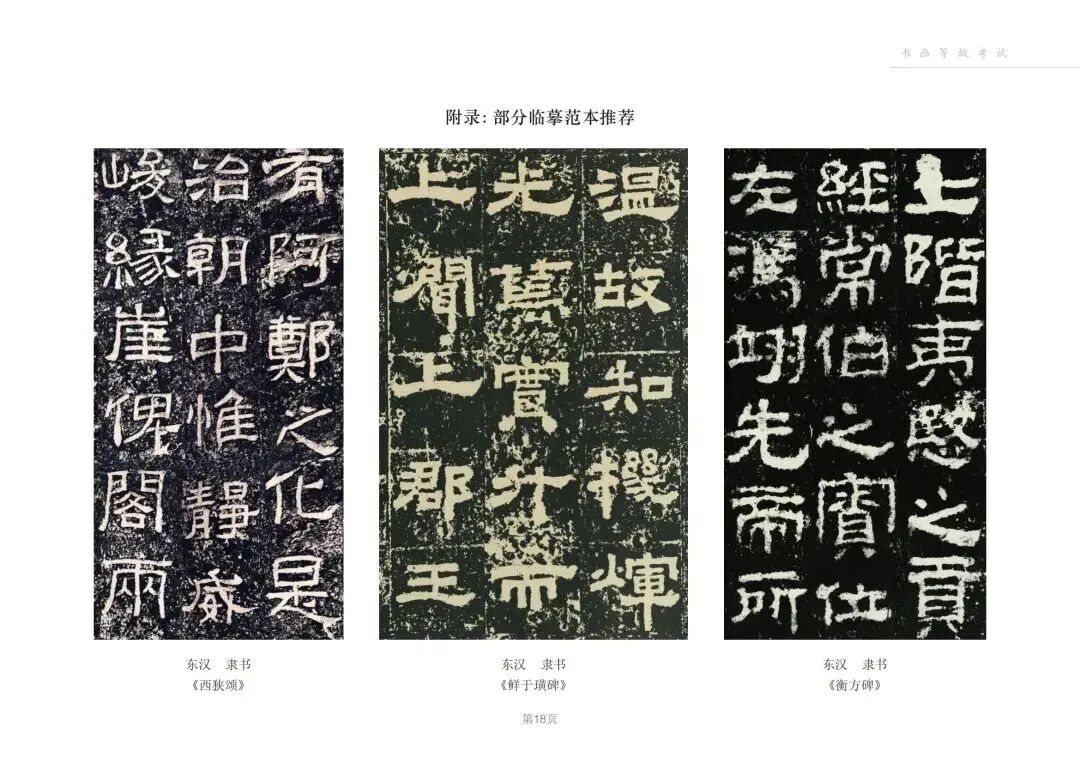 书画等级考试
附录：部分临摹范本推荐
有阿鄭之化是
治朝中惟靜威
峻緣崖俾閣兩
温故知機煇
光篤實升而
上聞上郡王
上階夷愍之貢
經常伯之寮位
左馮翊先帝所
东汉 隶书
《西狭颂》
东汉 隶书
《鲜于璜碑》
东汉 隶书
《衡方碑》
第18页